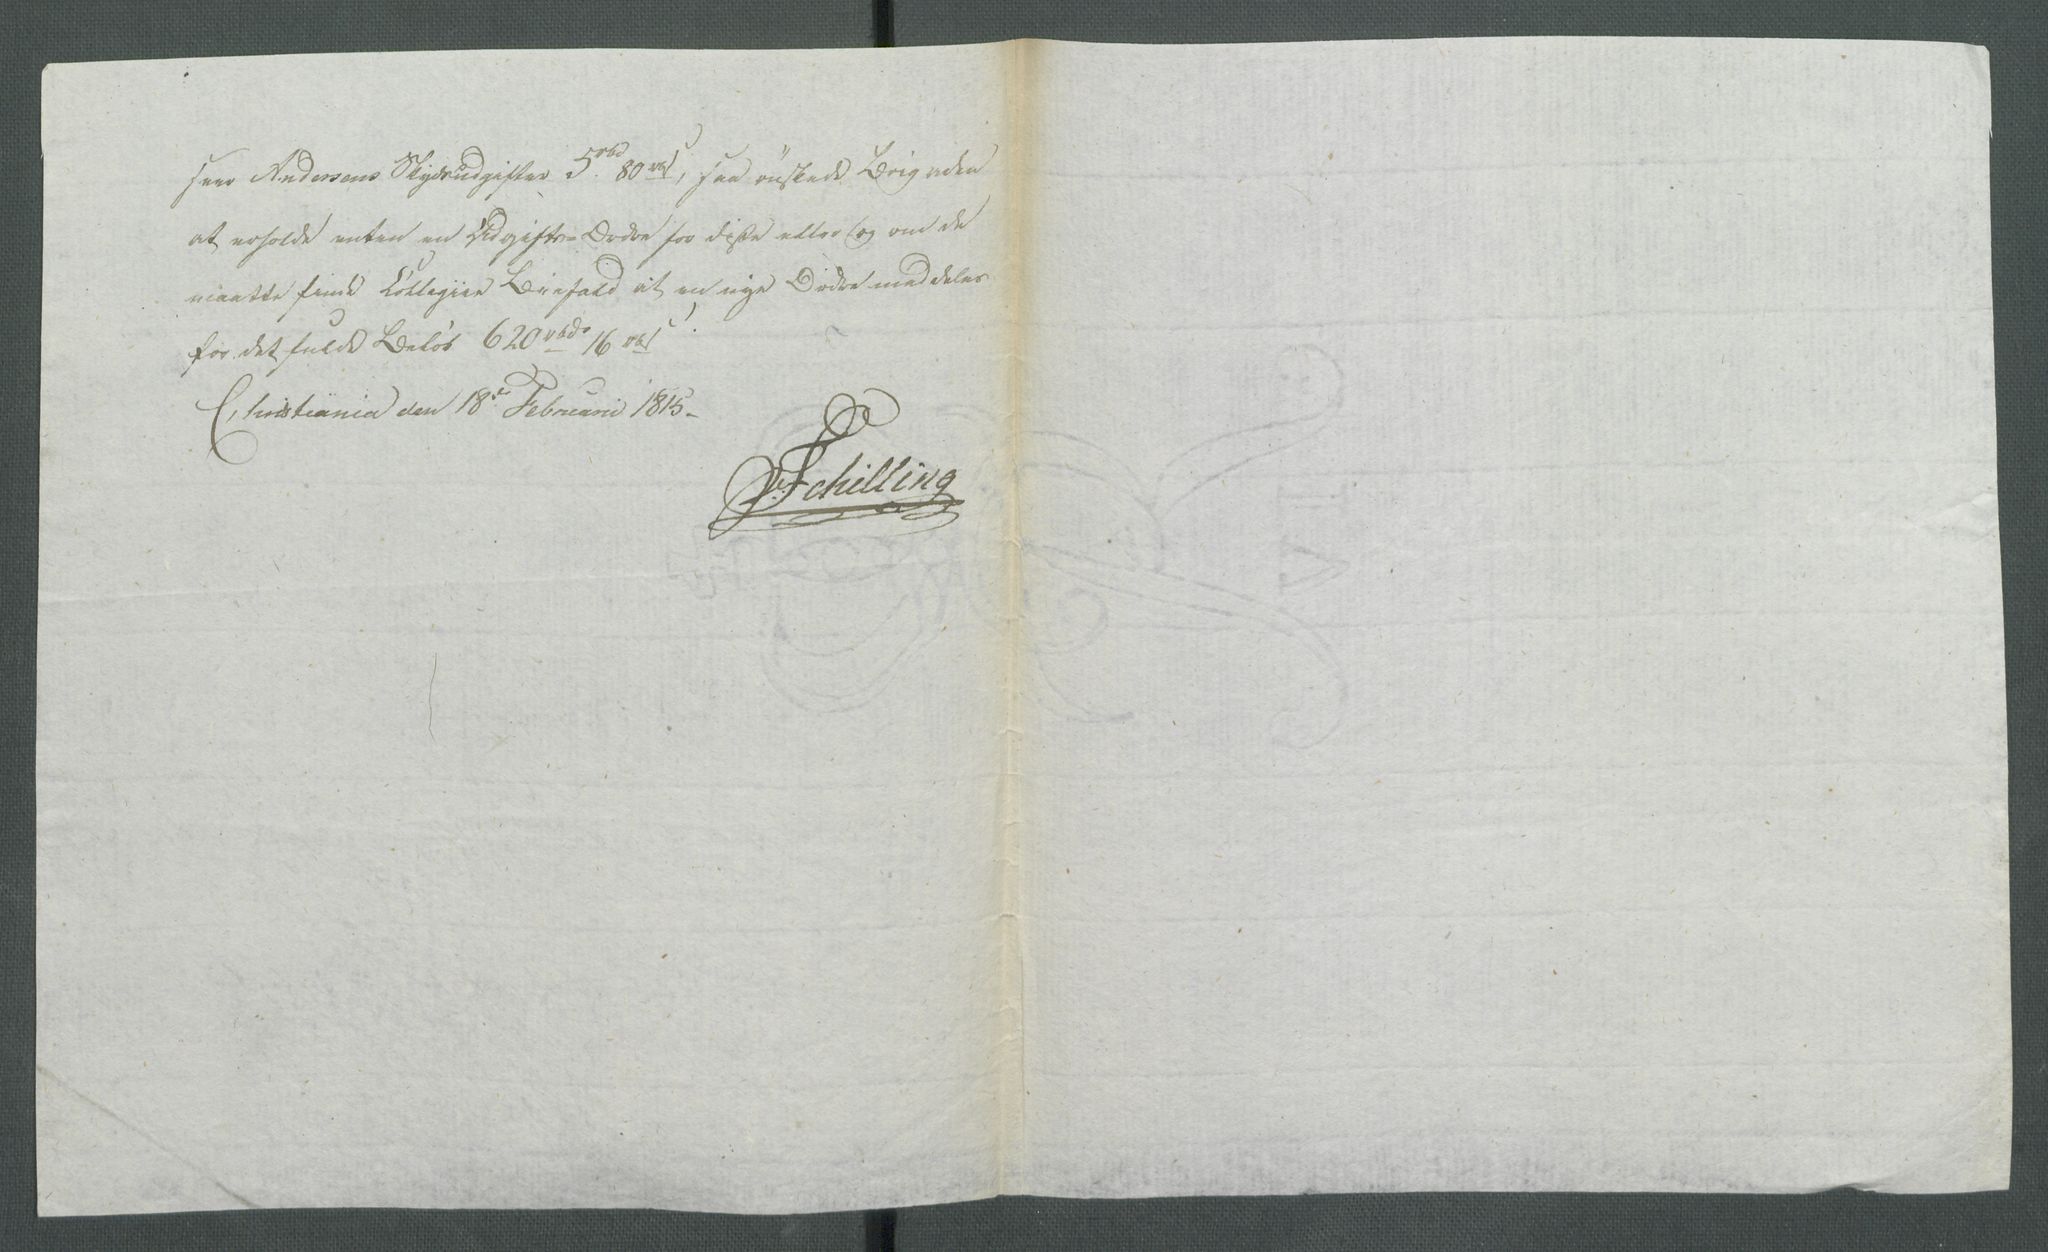 seer Andersens Skydsudgifter 5 rbd 80 rbs, saa ønskede Brigaden
at erholde enten en Udgifts-Ordre for disse eller og om de
maatte finde Collegiee Biefald at en nye Ordre meddeles
for det fulde Beløb 620 rbd 16 rbs.
Christiania den 18de Februarii 1815.
Schilling